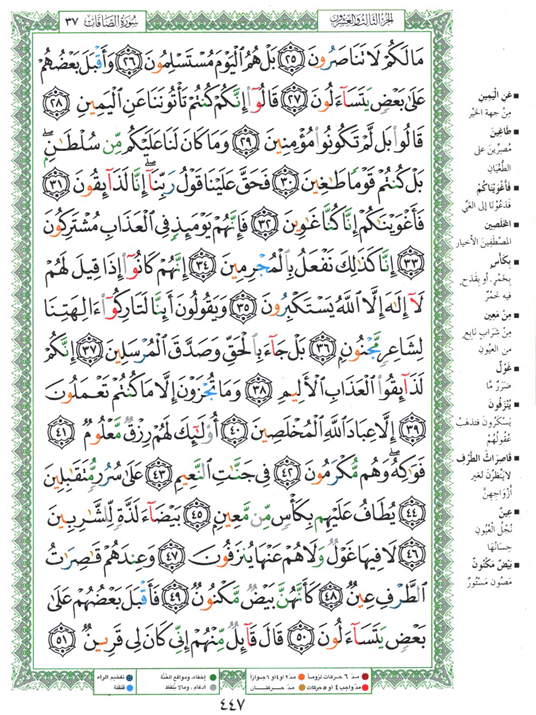 سُورَةُ الصَّافَّات ٣٧
الجزء الثالث والعشرون
مَا لَكُمْ لَا تَنَاصَرُونَ ٢٥ بَلْ هُمُ الْيَوْمَ مُسْتَسْلِمُونَ ٢٦ وَأَقْبَلَ بَعْضُهُمْ
عَلَىٰ بَعْضٍ يَتَسَاءَلُونَ ٢٧ قَالُوا إِنَّكُمْ كُنتُمْ تَأْتُونَنَا عَنِ الْيَمِينِ ٢٨
قَالُوا بَل لَّمْ تَكُونُوا مُؤْمِنِينَ ٢٩ وَمَا كَانَ لَنَا عَلَيْكُم مِّن سُلْطَانٍ ۖ
بَلْ كُنتُمْ قَوْمًا طَاغِينَ ٣٠ فَحَقَّ عَلَيْنَا قَوْلُ رَبِّنَا ۖ إِنَّا لَذَائِقُونَ ٣١
فَأَغْوَيْنَاكُمْ إِنَّا كُنَّا غَاوِينَ ٣٢ فَإِنَّهُمْ يَوْمَئِذٍ فِي الْعَذَابِ مُشْتَرِكُونَ
٣٣ إِنَّا كَذَٰلِكَ نَفْعَلُ بِالْمُجْرِمِينَ ٣٤ إِنَّهُمْ كَانُوا إِذَا قِيلَ لَهُمْ
لَا إِلَٰهَ إِلَّا اللَّهُ يَسْتَكْبِرُونَ ٣٥ وَيَقُولُونَ أَئِنَّا لَتَارِكُوا آلِهَتِنَا
لِشَاعِرٍ مَّجْنُونٍ ٣٦ بَلْ جَاءَ بِالْحَقِّ وَصَدَّقَ الْمُرْسَلِينَ ٣٧ إِنَّكُمْ
لَذَائِقُوا الْعَذَابِ الْأَلِيمِ ٣٨ وَمَا تُجْزَوْنَ إِلَّا مَا كُنتُمْ تَعْمَلُونَ
٣٩ إِلَّا عِبَادَ اللَّهِ الْمُخْلَصِينَ ٤٠ أُولَٰئِكَ لَهُمْ رِزْقٌ مَّعْلُومٌ ٤١
فَوَاكِهُ ۖ وَهُم مُّكْرَمُونَ ٤٢ فِي جَنَّاتِ النَّعِيمِ ٤٣ عَلَىٰ سُرُرٍ مُّتَقَابِلِينَ
٤٤ يُطَافُ عَلَيْهِم بِكَأْسٍ مِّن مَّعِينٍ ٤٥ بَيْضَاءَ لَذَّةٍ لِّلشَّارِبِينَ
٤٦ لَا فِيهَا غَوْلٌ وَلَا هُمْ عَنْهَا يُنزَفُونَ ٤٧ وَعِندَهُمْ قَاصِرَاتُ
الطَّرْفِ عِينٌ ٤٨ كَأَنَّهُنَّ بَيْضٌ مَّكْنُونٌ ٤٩ فَأَقْبَلَ بَعْضُهُمْ عَلَىٰ
بَعْضٍ يَتَسَاءَلُونَ ٥٠ قَالَ قَائِلٌ مِّنْهُمْ إِنِّي كَانَ لِي قَرِينٌ ٥١
■ عَنِ الْيَمِينِ
مِنْ جِهَةِ الْخَيْرِ
■ طَاغِينَ
مُصِرِّينَ عَلَى
الطُّغْيَانِ
■ فَأَغْوَيْنَاكُمْ
فَدَعَوْنَاكُمْ إلَى الْغَيِّ
■ الْمُخْلَصِينَ
الْمُصْطَفَيْنَ الأخْيَارِ
■ بِكَأْسٍ
بِخَمْرٍ . أو بِقَدَحٍ
فِيهِ خَمْرٌ
■ مِنْ مَعِينٍ
مِنْ شَرَابٍ نَابِعٍ
مِنَ الْعُيُونِ
■ غَوْلٌ
ضَرَرٌ مَّا
■ يُنْزَفُونَ
يَسْكَرُونَ فَتَذْهَبُ
عُقُولُهُمْ
■ قَاصِرَاتُ الطَّرْفِ
لا يَنْظُرْنَ لِغَيْرِ
أزْوَاجِهِنَّ
■ عِينٌ
نُجْلُ الْعُيُونِ
حِسَانُهَا
■ بَيْضٌ مَكْنُونٌ
مَصُونٌ مَسْتُورٌ
مدّ ٦ حركات لزوماً مدّ ٢ أو ٤ أو ٦ جوازاً إخفاء، ومواقع الغنّة تفخيم الراء
مدّ واجب ٤ أو ٥ حركات مدّ حركتان إدغام، ومالا يُلفظ قلقلة
٤٤٧